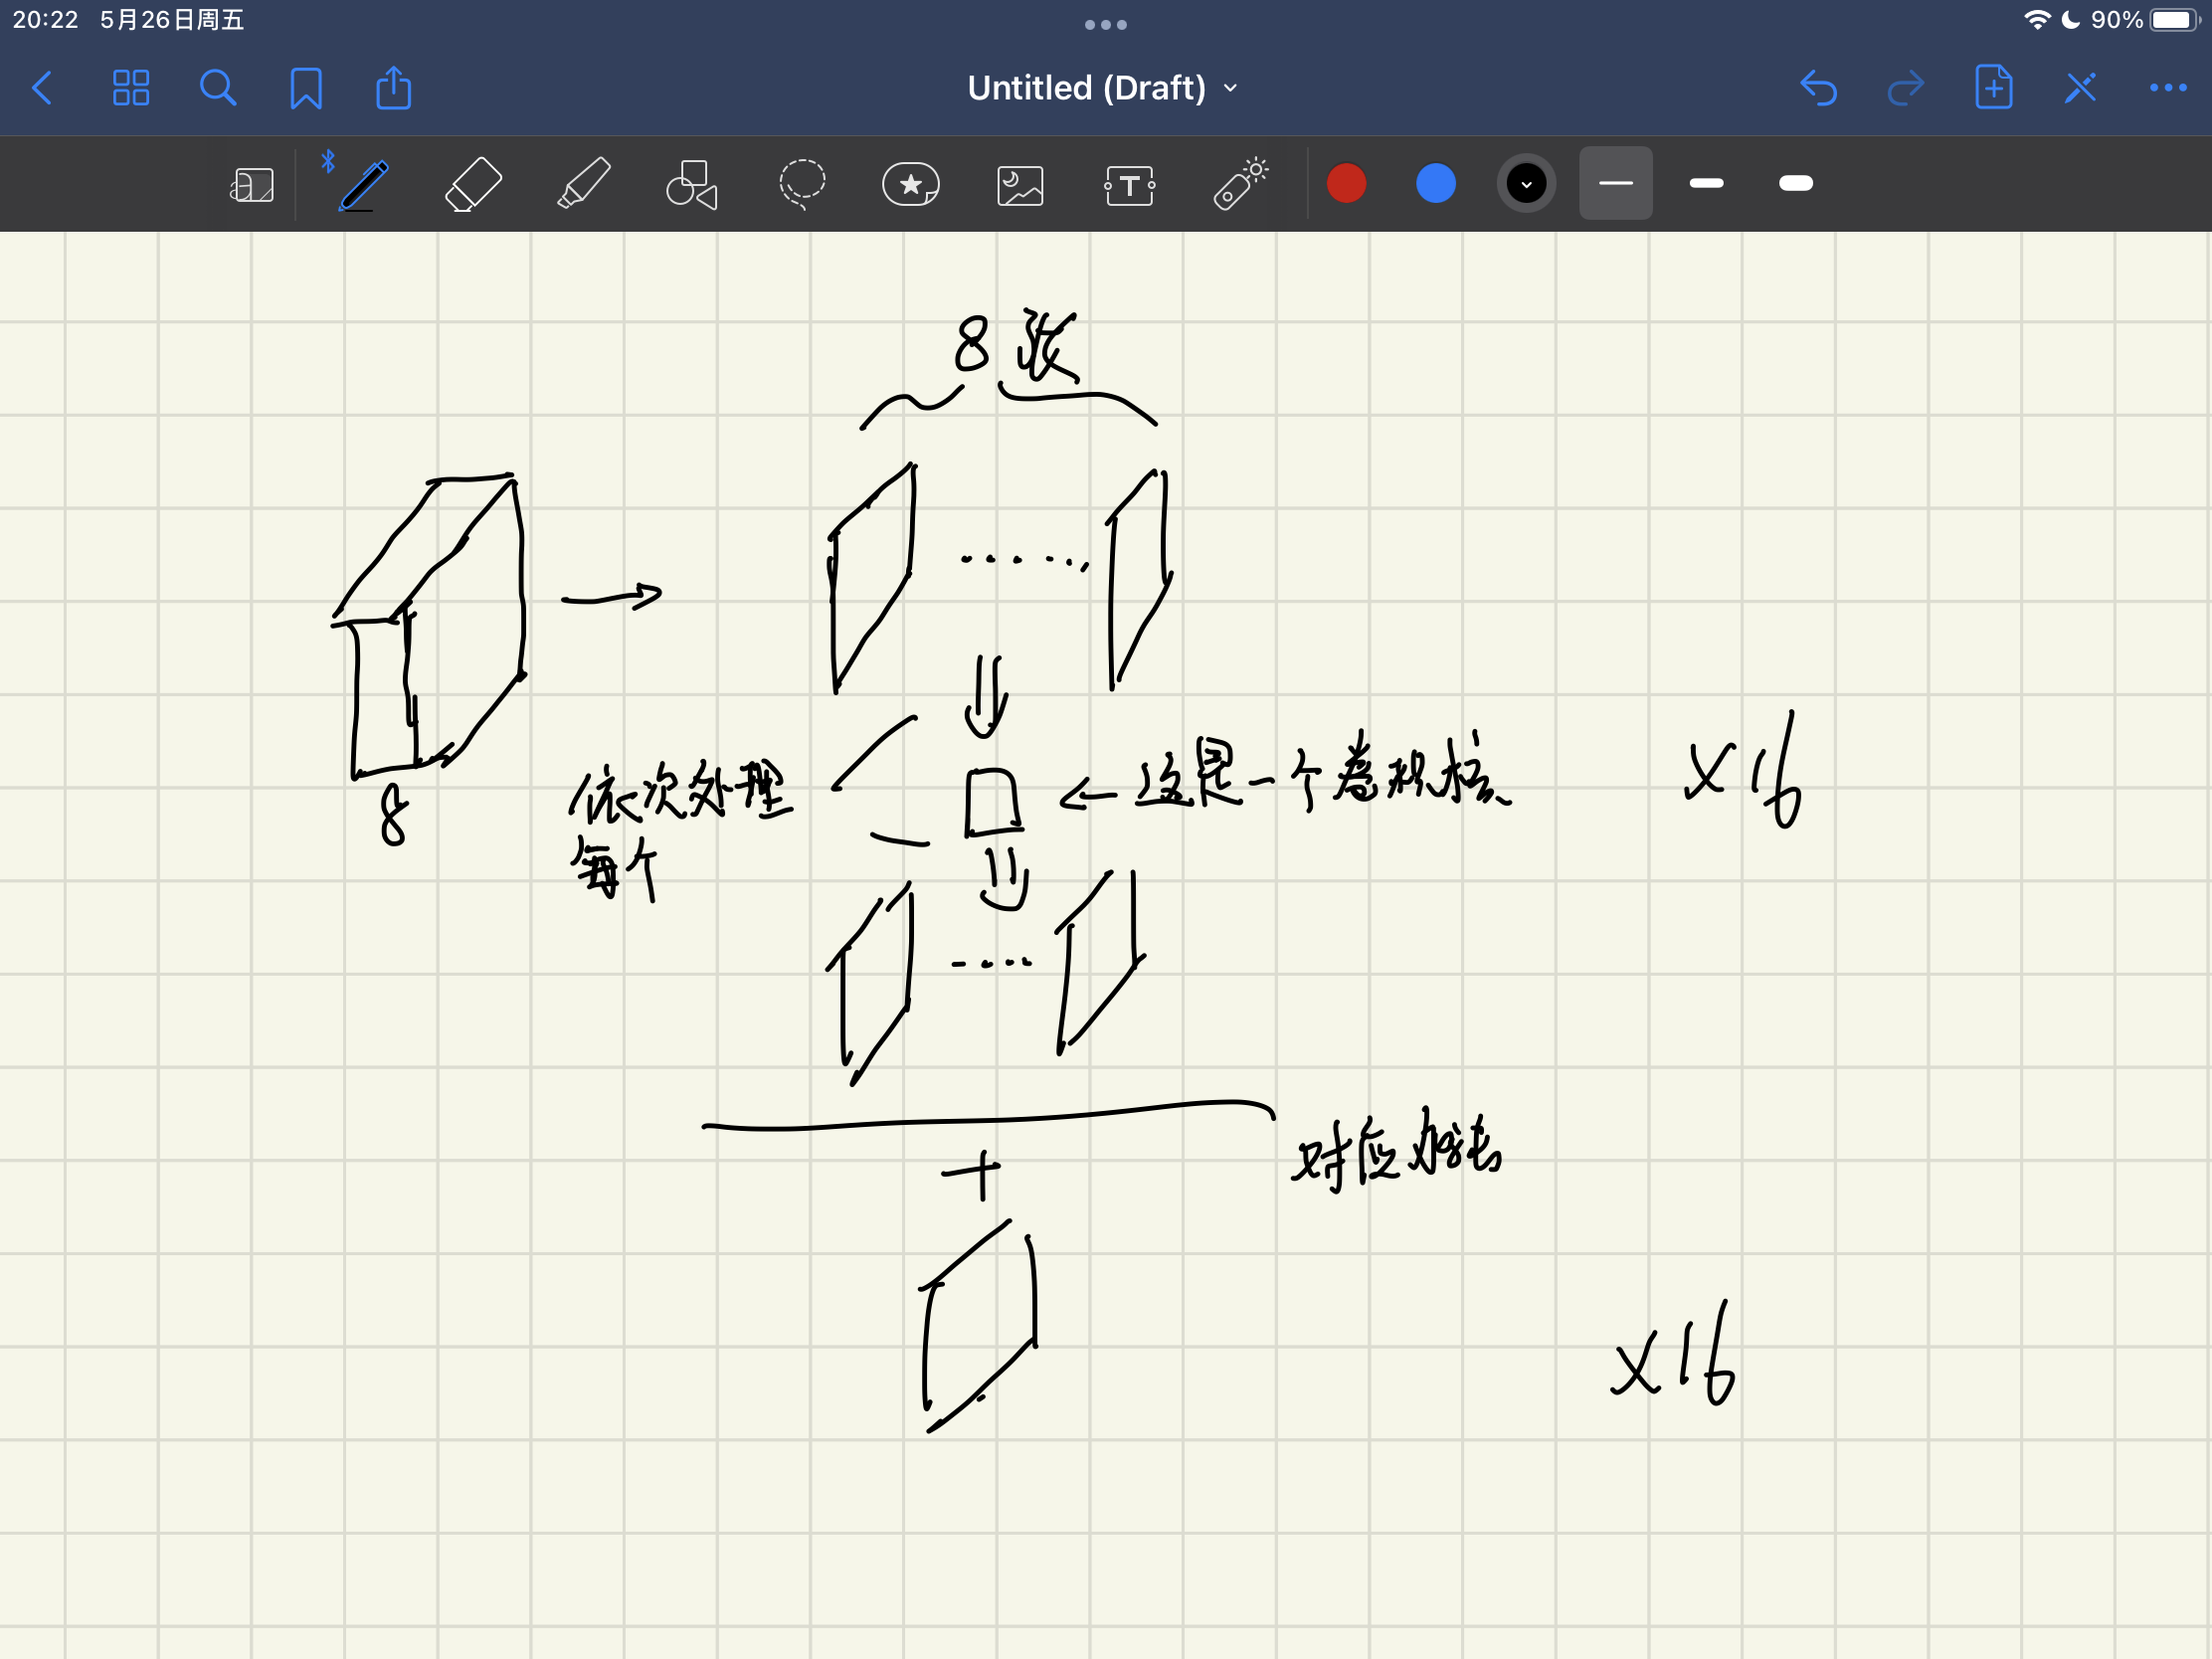 20:22 5月26日周五
90%
Untitled (Draft)
T
8张
8
依次处理
每个
这是一个卷积核
×16
+
对应相加
×16